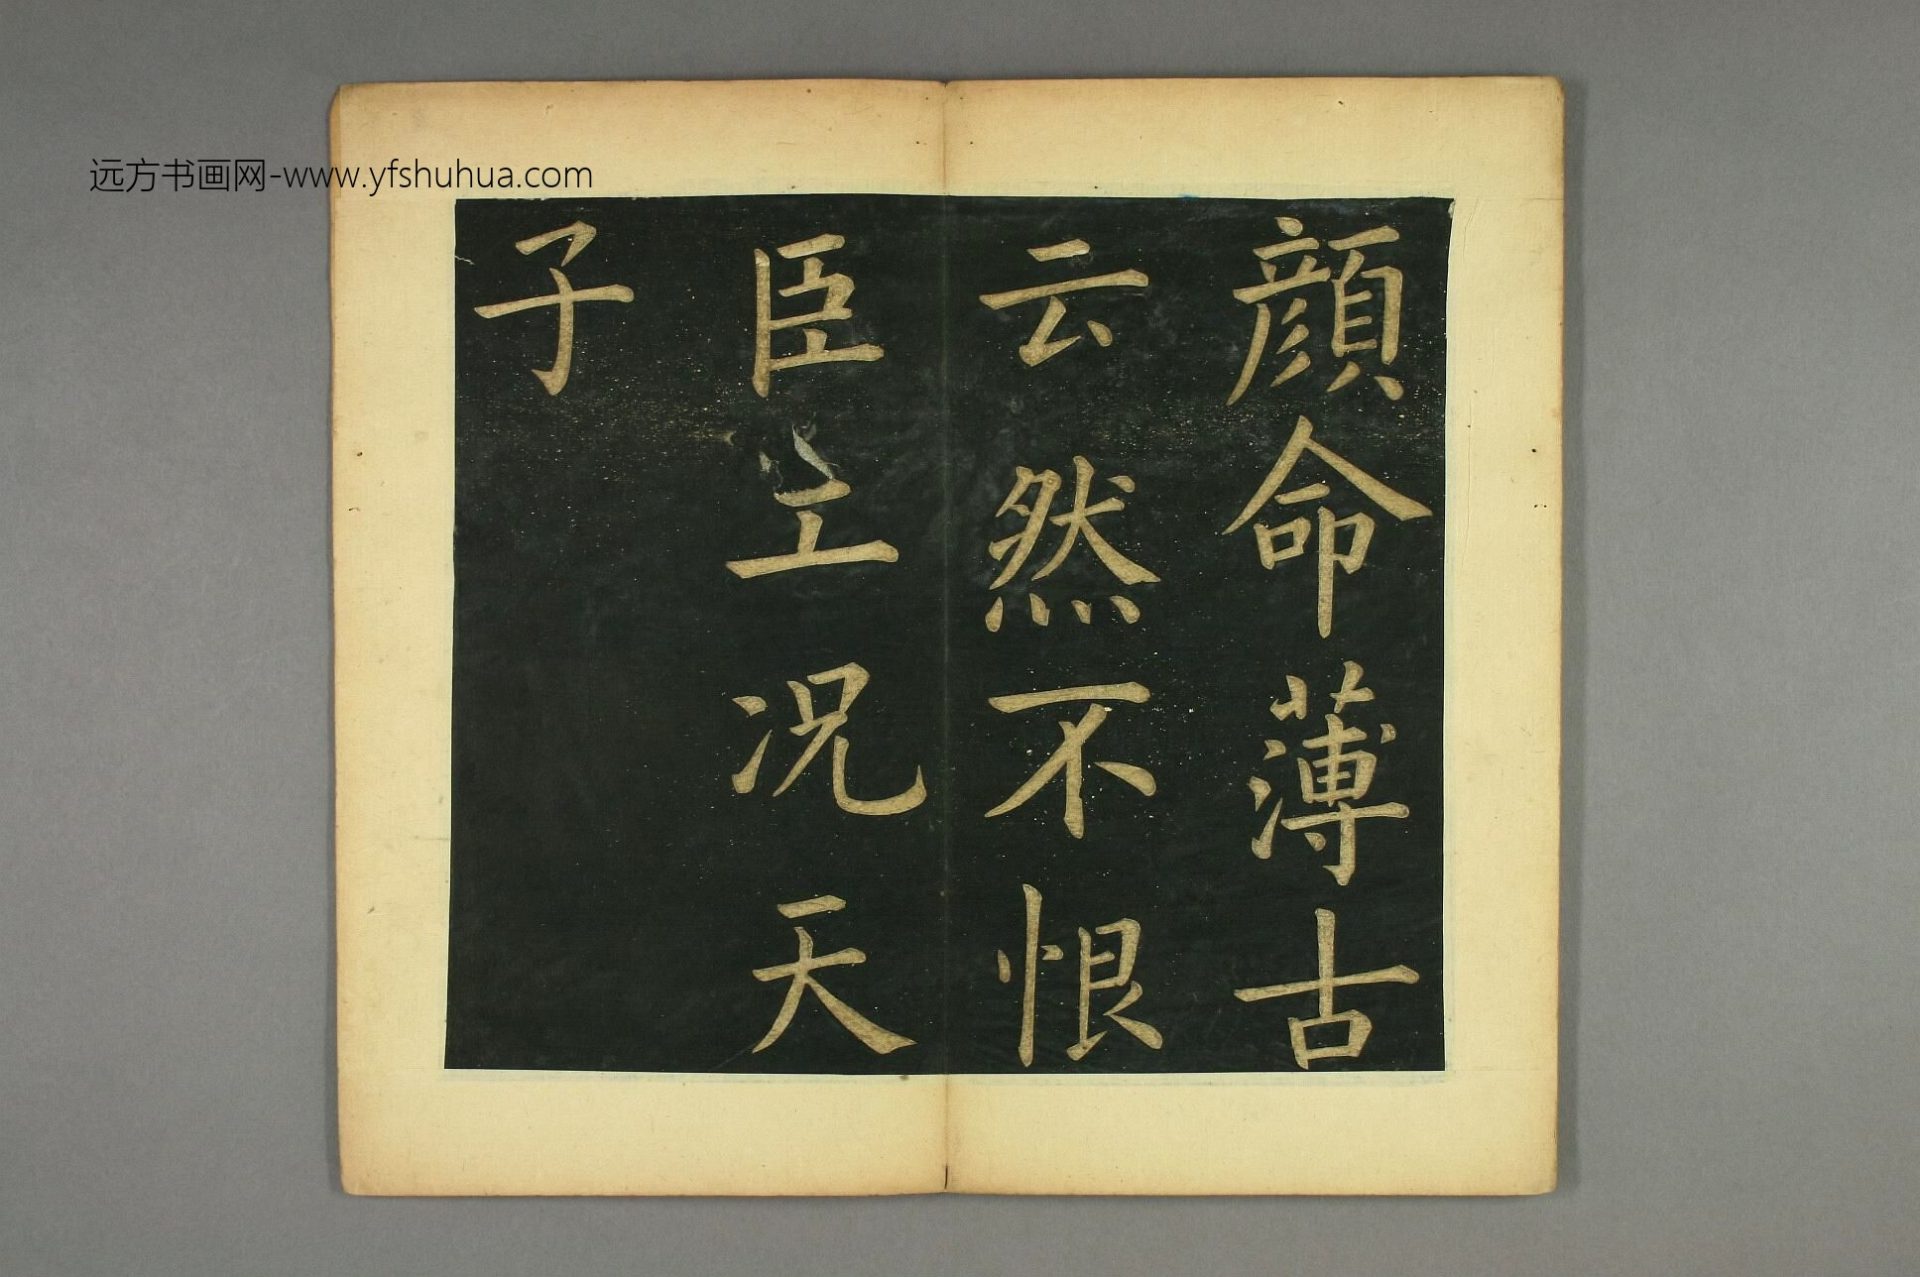 顔命薄古
云然不恨
臣工况天
子
远方书画网-www.yfshuhua.com